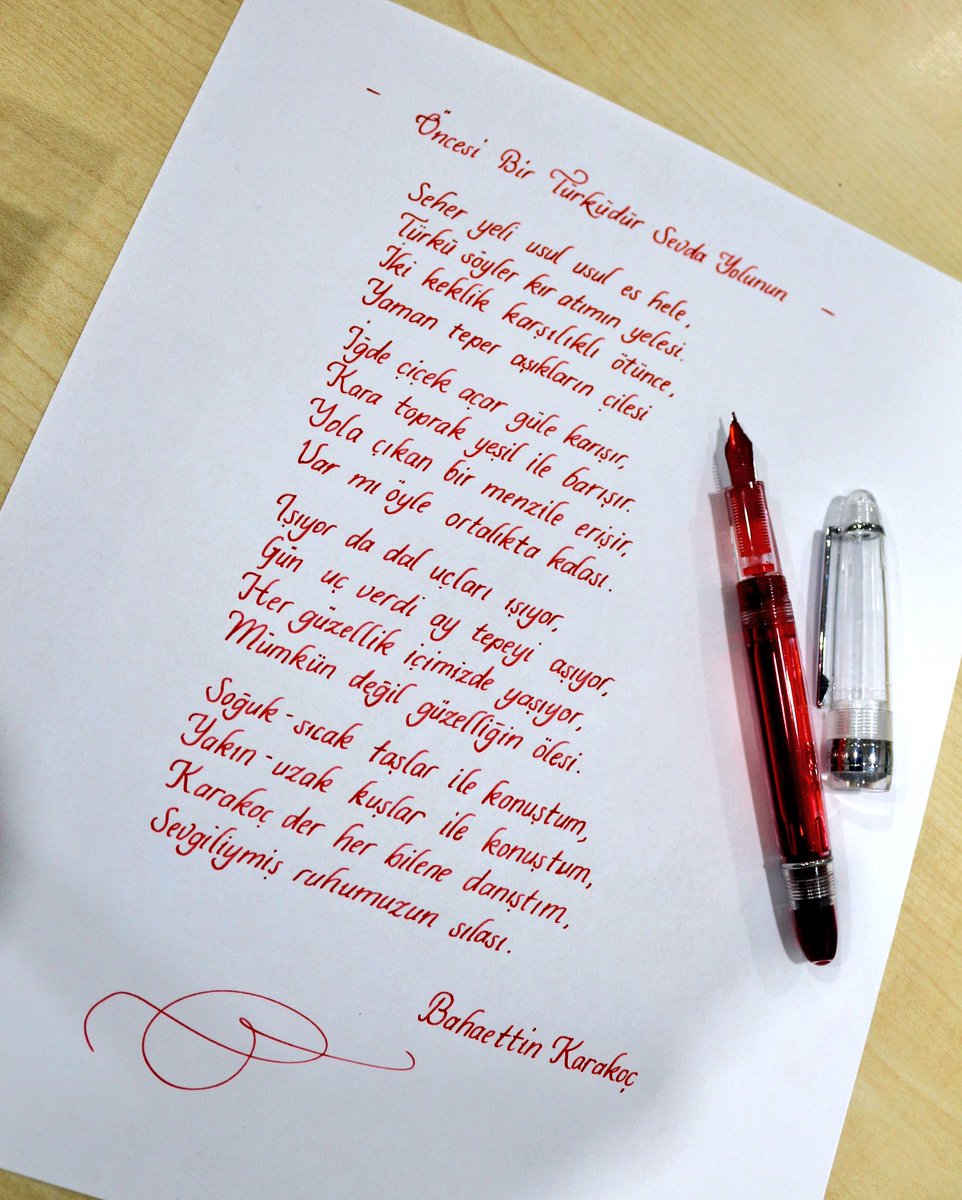 - Öncesi Bir Türküdür Sevda Yolunun -
Seher yeli usul usul es hele,
Türkü söyler kır atımın yelesi.
İki keklik karşılıklı ötünce,
Yaman teper aşıkların çilesi
İğde çiçek açar güle karışır,
Kara toprak yeşil ile barışır.
Yola çıkan bir menzile erişir,
Var mı öyle ortalıkta kalası.
Işıyor da dal uçları ışıyor,
Gün uç verdi ay tepeyi aşıyor,
Her güzellik içimizde yaşıyor,
Mümkün değil güzelliğin ölesi.
Soğuk-sıcak taşlar ile konuştum,
Yakın-uzak kuşlar ile konuştum,
Karakoç der her bilene danıştım,
Sevgiliymiş ruhumuzun sılası.
Bahaettin Karakoç